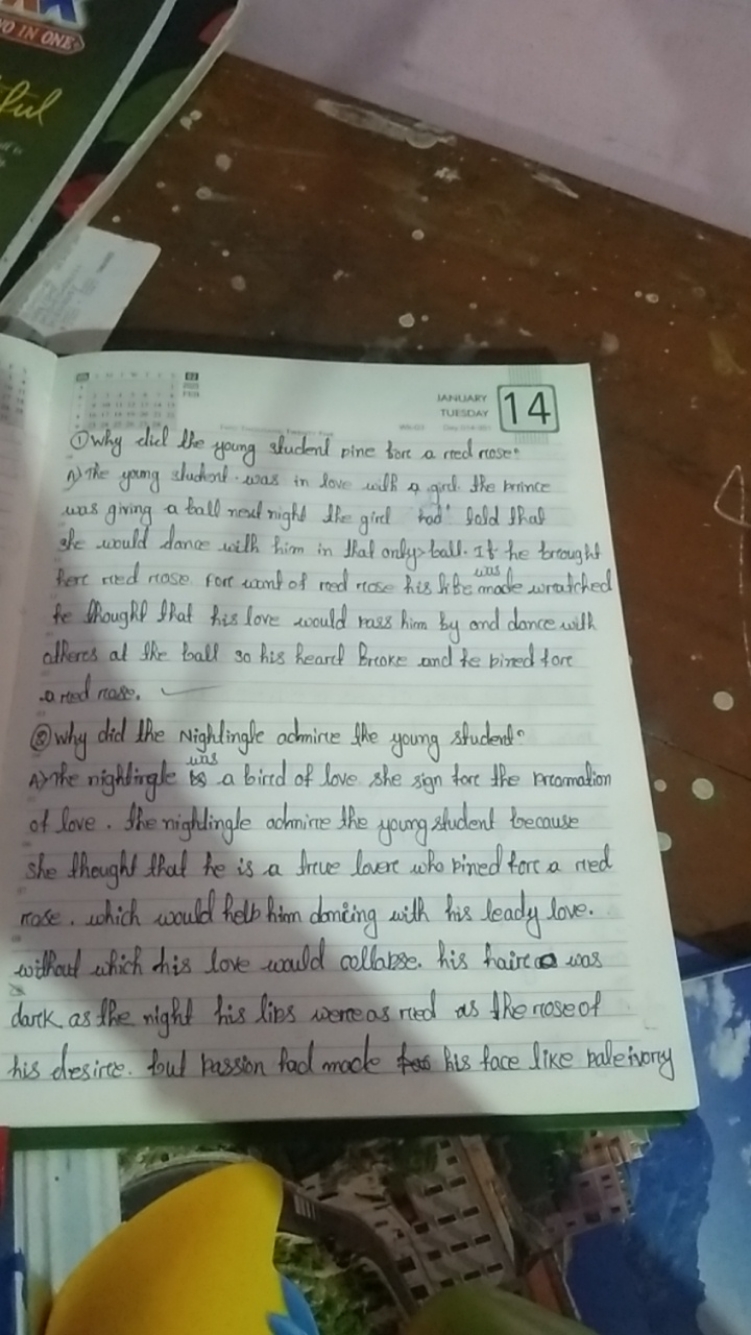 O IN ONE
ful
JANUARY
TUESDAY
14
① Why did the young student pine fore a red rose?
A) The young student was in love with a girl. the prince
was giving a ball next night the girl had told that
she would dance with him in that only ball. If he brought
here red rose fore want of red rose his life was made wratched
he thought that his love would pass him by and dance with
otheres at the ball so his heard Broke and he pined fore
a red rose.
② Why did the Nightingle admire the young student?
A) The nightingle was a bired of love she sign fore the
of love. the nightingle admire the young student because
she thought that he is a treue lovere who pined fore a red
rose. which would help him dancing with his leady love.
without which his love would collapse. his haire was
dark as the night his lips were as red as the rose of
his desire. but passion had made his face like pale ivory